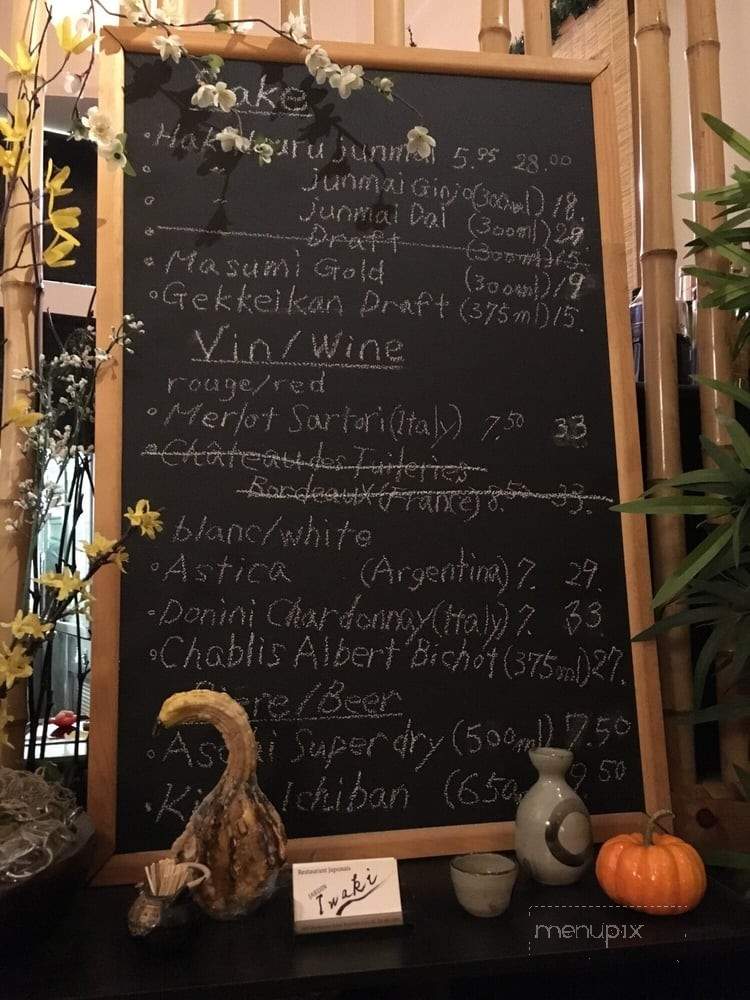 Sake
• Hakutsuru junmai 5.95 28.00
• " junmai Ginjo (300ml) 18.
• junmai Dai (300ml) 29.
• Draft (300ml) 15.
• Masumi Gold (300ml) 19
• Gekkeikan Draft (375ml) 15.
Vin/Wine
rouge/red
• Merlot Sartori (Italy) 7.50 33
• Château des Tuileries
Bordeaux (France) 8.50 33.
blanc/white
• Astica (Argentina) 7. 29.
• Donini Chardonnay (Italy) 7. 33
• Chablis Albert Bichot (375ml) 27.
Bière/Beer
• Asahi Super dry (500ml) 7.50
• Ki Ichiban (650m 9.50
Restaurant Japonais
JARDIN
Iwaki
menupix